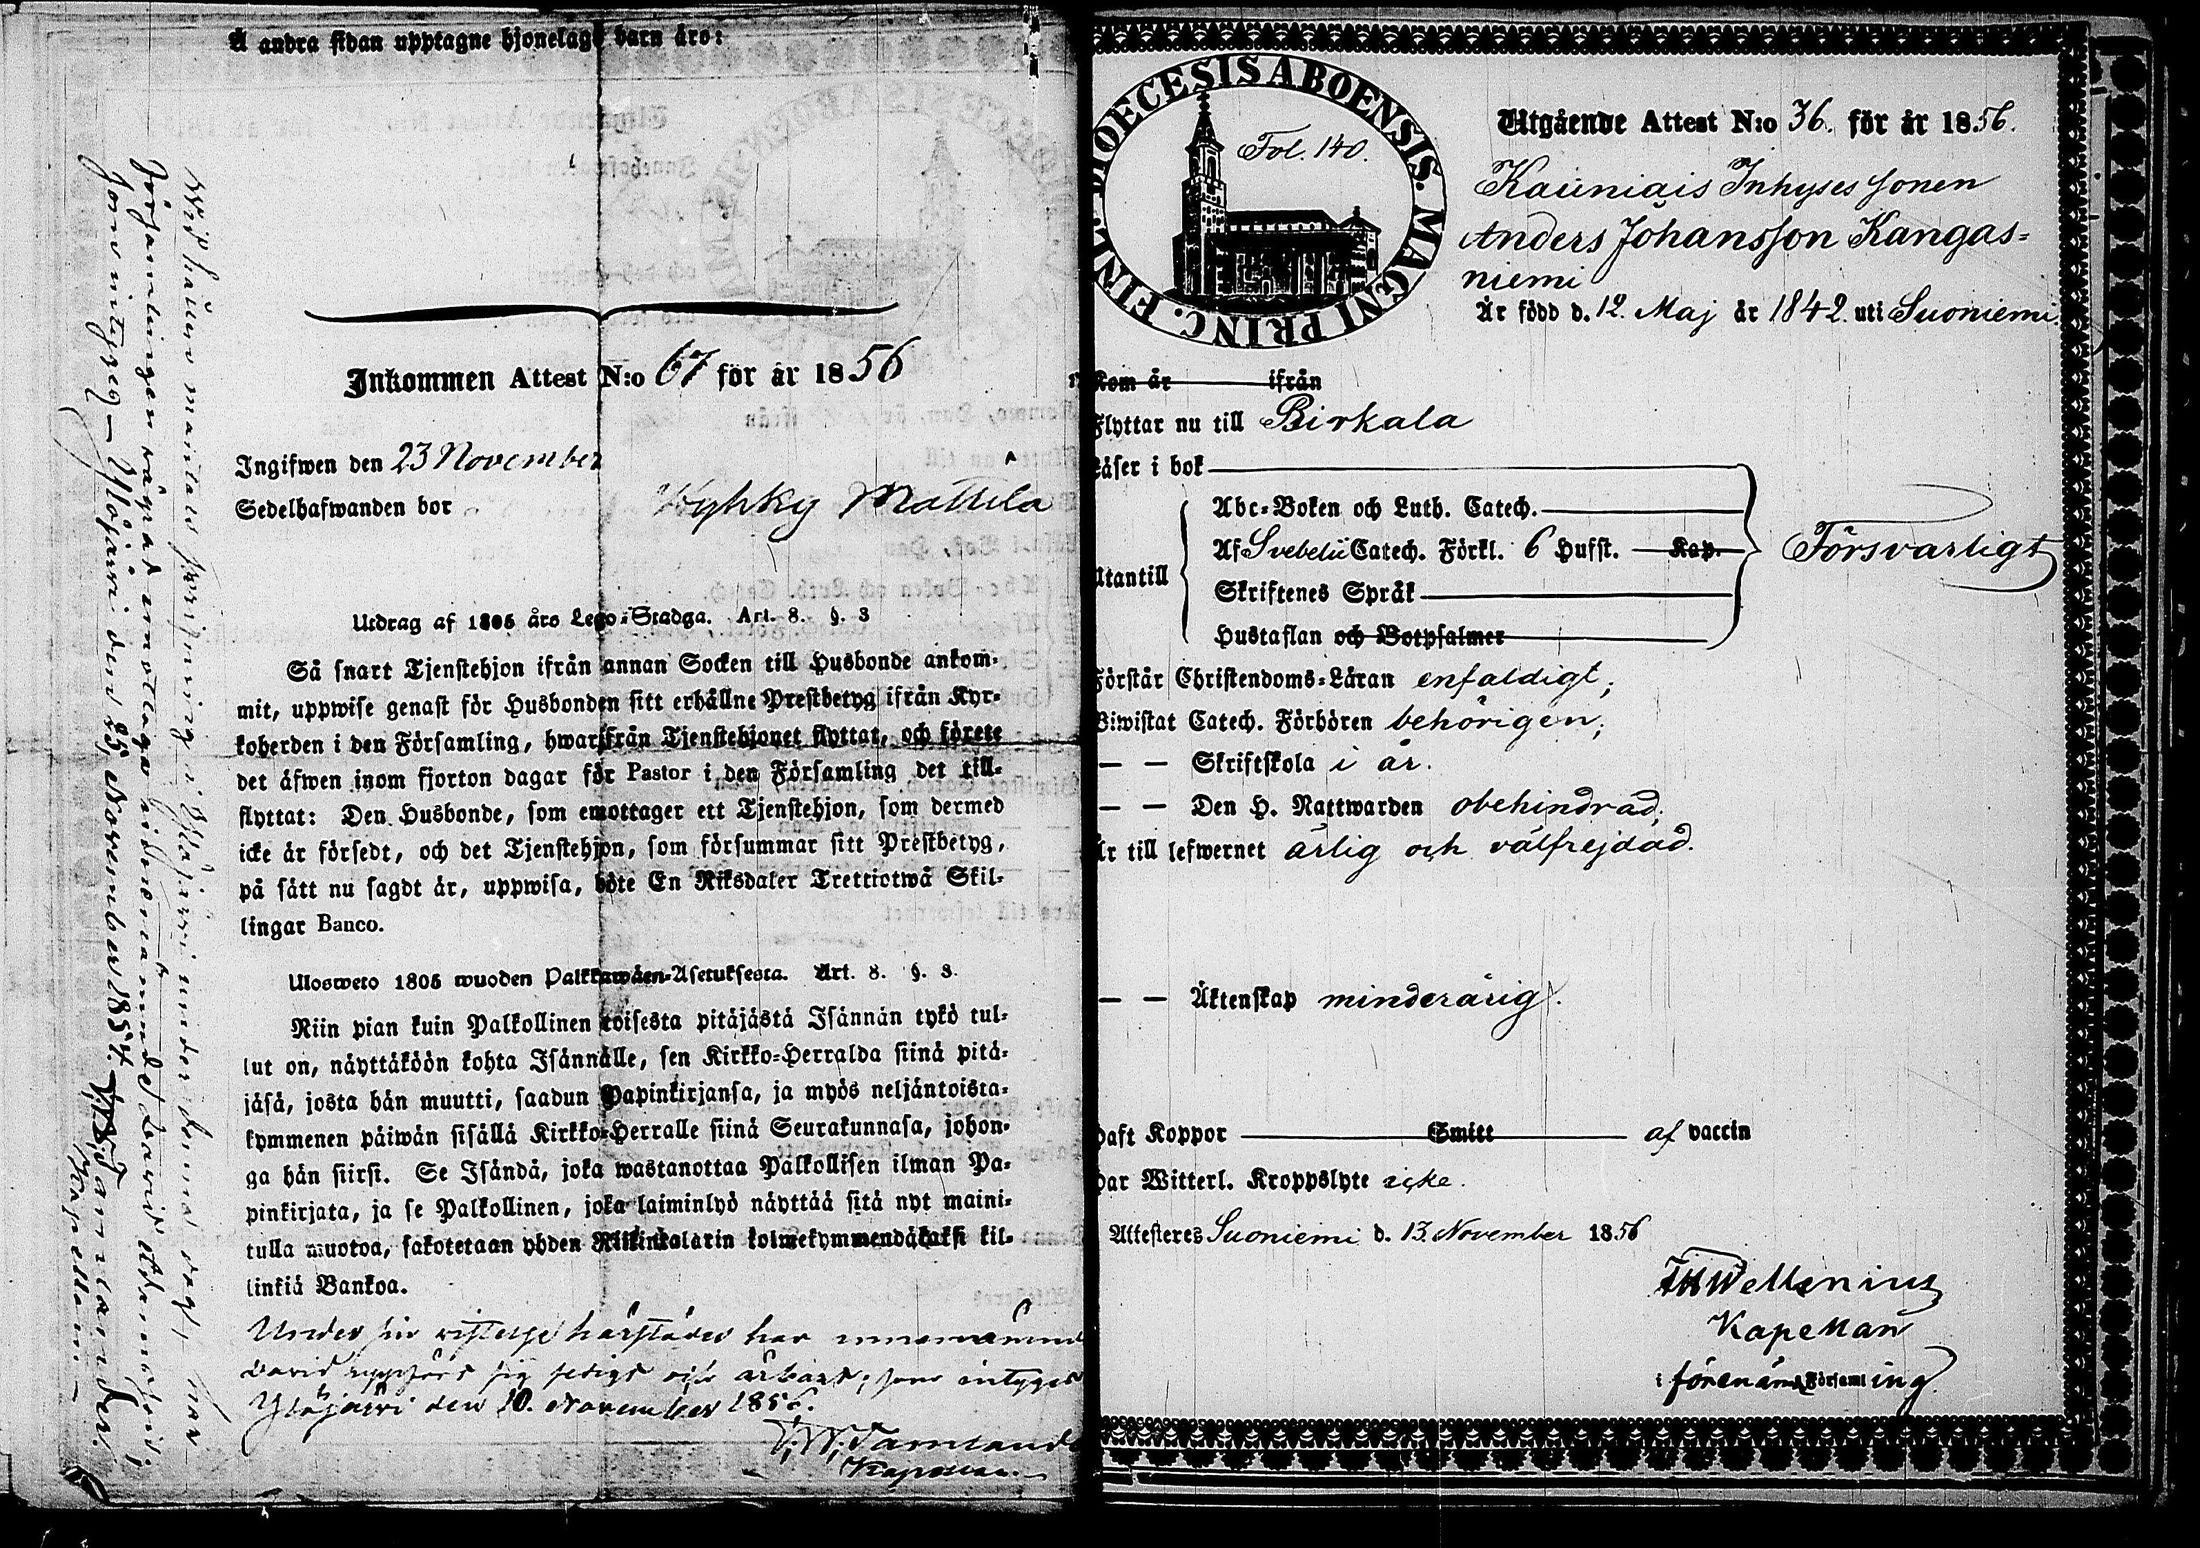 Å andra sidan upptagne hjonelags barn äro:
Inkommen Attest N:o 67 för år 1856
Ingifwen den 23 November
Sedelhafwanden bor Wyhky Mattila
Utdrag af 1805 års Lego-Stadga. Art. 8. §. 3
Så snart Tjenstehjon ifrån annan Socken till Husbonde ankom-
mit, uppwise genast för Husbonden sitt erhållne Prestbetyg ifrån Kyr-
koherden i den Församling, hwarifrån Tjenstehjonet flyttat, och förete
det äfwen inom fjorton dagar för Pastor i den Församling det till-
flyttat: Den Husbonde, som emottager ett Tjenstehjon, som dermed
icke är försedt, och det Tjenstehjon, som försummar sitt Prestbetyg,
på sätt nu sagdt är, uppwisa, böte En Riksdaler Trettiotwå Skil-
lingar Banco.
Ulosweto 1805 wuoden Palkkawäen-Asetuksesta. Art. 8. §. 3.
Niin pian kuin Palkollinen toisesta pitäjästä Isännän tykö tul-
lut on, näyttäköön kohta Isännälle, sen Kirkko-Herralda siinä pitä-
jäsä, josta hän muutti, saadun Papinkirjansa, ja myös neljäntoista-
kymmenen päiwän sisällä Kirkko-Herralle siinä Seurakunnasa, johon-
ga hän siirsi. Se Isändä, joka wastanottaa Palkollisen ilman Pa-
pinkirjata, ja se Palkollinen, joka laiminlyö näyttää sitä nyt maini-
tulla muotoa, sakotetaan yhden Riikintalarin kolmekymmendäkaksi kil-
linkiä Bankoa.
Under sin wistelse härstädes har innannämnd
David uppfört sig sedigt och ärbart; som intygas
Ylöjärvi den 10. November 1856.
V. W. Tamlander
Kapellan.
Wid hållen mantals skrifning i Ylöjärvi under denna dag, har
Församlingen rågat emottaga sidonämnd David Adamsson;
som intygas – Ylöjärvi den 25 November 1854.
V. W. Tamlander.
Kapellan.
DIOECESIS ABOENSIS. MAGNI PRINC. FINL.
Fol. 140.
Utgående Attest N:o 36. för år 1856.
Kauniais Inhyses sonen
Anders Johansson Kangas-
niemi
Är född d. 12. Maj år 1842 uti Suoniemi.
Kom år ifrån
Flyttar nu till Birkala
Läser i bok
Utantill
Abc-Boken och Luth. Catech.
Af Svebelii Catech. Förkl. 6 Hufst. Kap.
Skriftenes Språk
Hustaflan och Botpsalmer
Försvarligt
Förstår Christendoms-Läran enfaldigt;
Biwistat Catech. Förhören behörigen;
— — Skriftskola i år.
— — Den H. Nattwarden obehindrad;
Är till lefwernet ärlig och välfrejdad.
— — Äktenskap minderårig.
Haft Koppor Smitt af vaccin
Har Witterl. Kroppslyte icke.
Attesteres Suoniemi d. 13. November 1856
F H Wellenius
Kapellan
i förenämnd Församling.